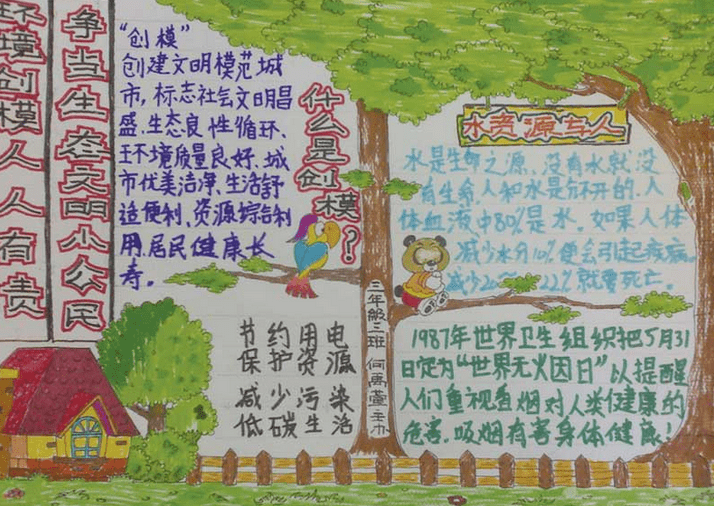 环境创模人人有责
争当生态文明小公民
“创模”
创建文明模范城
市，标志社会文明昌
盛、生态良性循环、
环境质量良好、城
市优美洁净、生活舒
适便利、资源综合利
用、居民健康长
寿。
什么是创模？
节约用电
保护资源
减少污染
低碳生活
三年级三班
水资源与人
水是生命之源，没有水就没
有生命，人和水是分不开的，人
体血液中80%是水，如果人体
减少水分10%便会引起疾病，
减少20%~22%就要死亡。
1987年世界卫生组织把5月31
日定为“世界无烟日”以提醒
人们重视香烟对人类健康的
危害，吸烟有害身体健康！